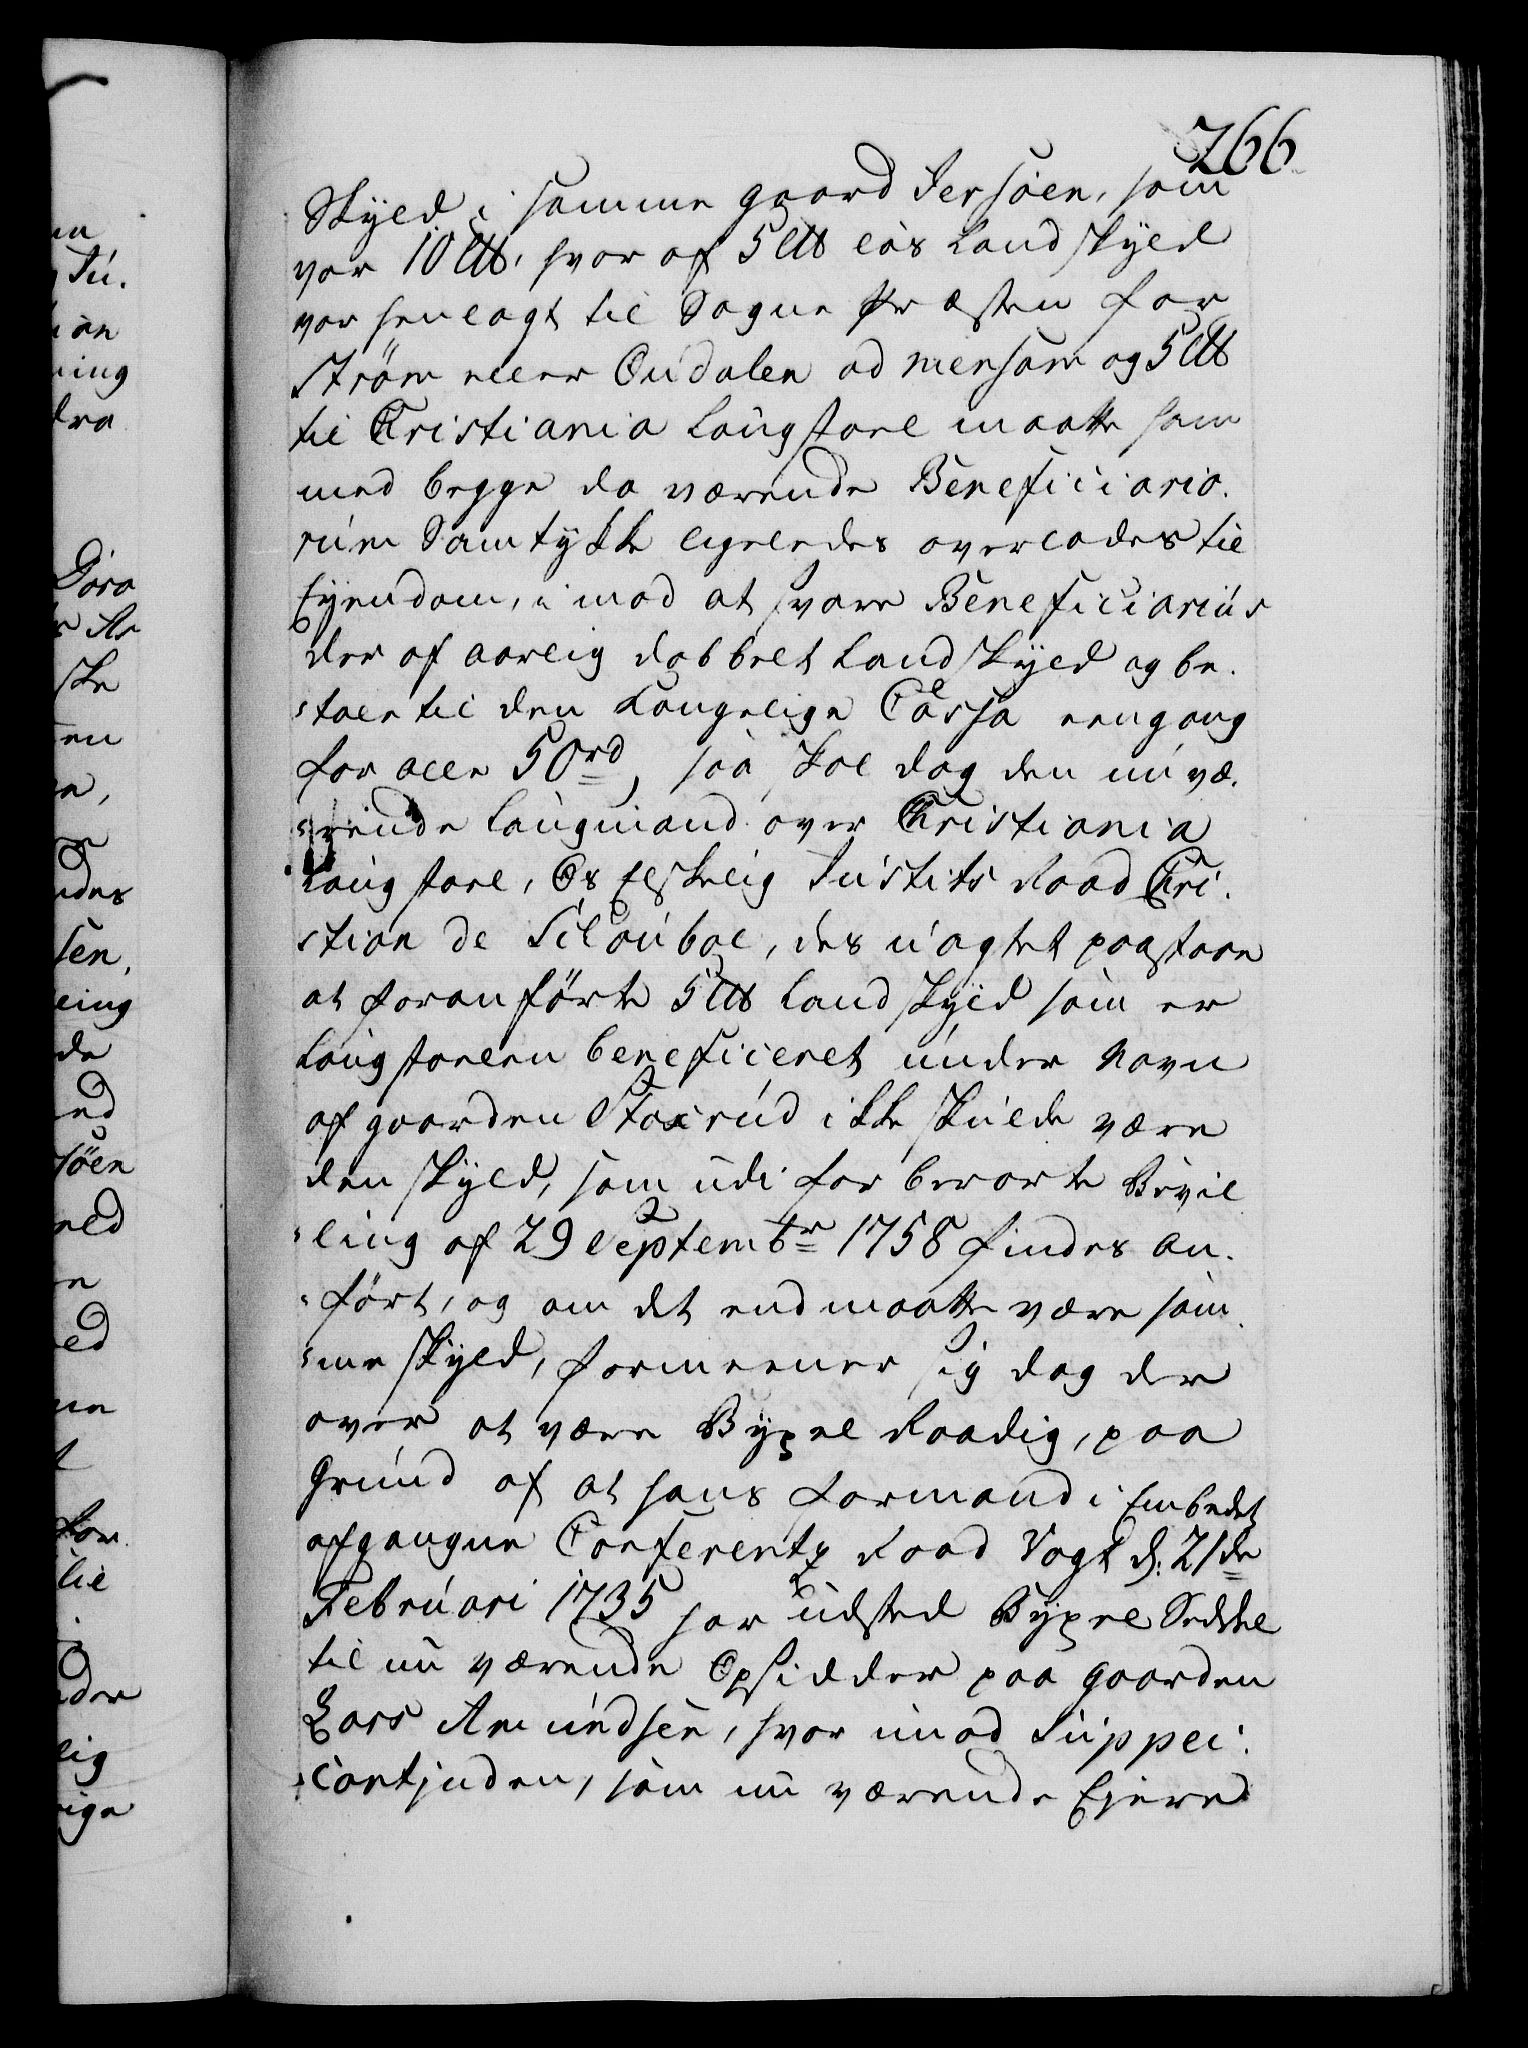 266
Skyld i samme gaard Jersöen, som
var 10 lb, hvor af 5 lb løs Landskyld
var henlagt til Sogne Præsten for
Ström eller Oudalen ad mensam og 5 lb
til Christiania Laugstoel maatte sam
med begge da værende Beneficiario.
rum Samtykke ligeledes overlades til
Eyendom, i mod at svare Beneficiarius
der af aarlig dobbelt Landskyld og be.
tale til den Kongelige Cassa eengang
for alle 50 rd, saa skal dog den nu væ.
rende Laugmand over Christiania
Laugstoel, Os Elskelig Justits Raad Chri.
stian de Schouboe, des uagtet paastaae
at foranförte 5 lb Landskyld som er
Laugstoelen beneficeret under Navn
af gaarden Stoxrud ikke skulde være
den skyld, som udi forberørte Bevil
ling af 29 Septembr 1758 findes an.
fört, og om det end maatte være sam.
me skyld, formeener sig dog der
over at være Byxel Raadig, paa
Grund af at hans Formand i Embedet
afgangne Conferentz Raad Vogt d. 21de
Februari 1735 har udsted Byxel Seddel
til nu værende Opsidder paa Gaarden
Lars Amundsen, hvor imod Suppli.
cantinden, som nu værende Ejere